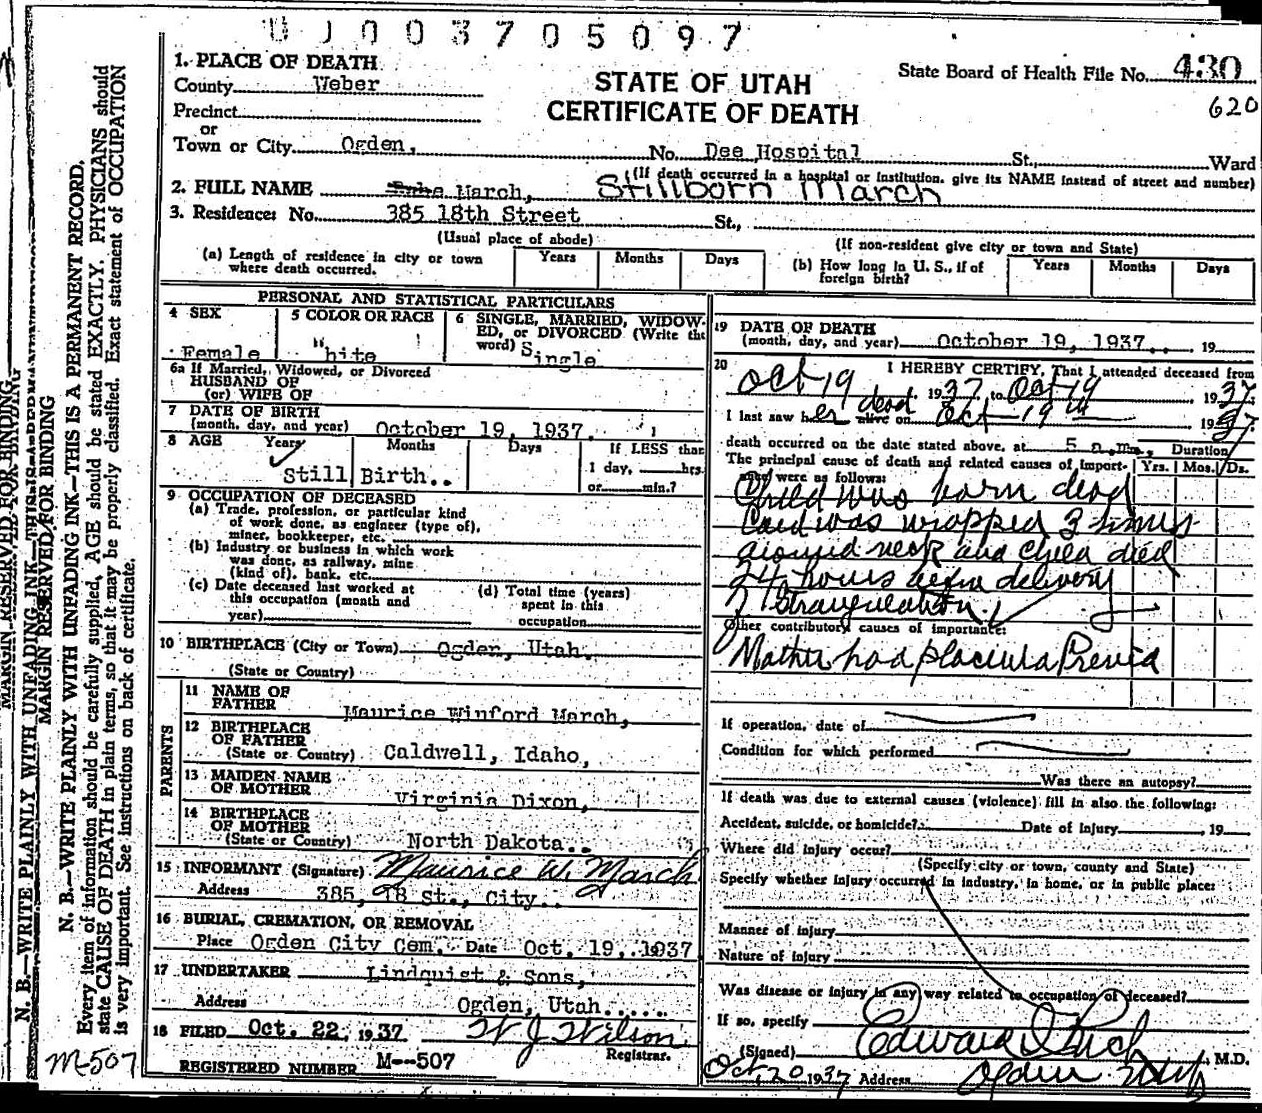 U J 0 0 3 7 0 5 0 9 7
1. PLACE OF DEATH
County Weber
STATE OF UTAH
CERTIFICATE OF DEATH
State Board of Health File No. 430
620
Precinct
or
Town or City Ogden, No. Dee Hospital St., Ward
(If death occurred in a hospital or institution, give its NAME instead of street and number)
2. FULL NAME March, Stillborn March
3. Residence: No. 385 18th Street St.,
(Usual place of abode) (If non-resident give city or town and State)
(a) Length of residence in city or town where death occurred. Years Months Days
(b) How long in U. S., if of foreign birth? Years Months Days
PERSONAL AND STATISTICAL PARTICULARS
4 SEX Female
5 COLOR OR RACE White
6 SINGLE, MARRIED, WIDOWED, or DIVORCED (Write the word) Single
6a If Married, Widowed, or Divorced
HUSBAND OF
(or) WIFE OF
7 DATE OF BIRTH
(month, day, and year) October 19, 1937.
8 AGE Years Months Days If LESS than
Still Birth.. 1 day, hrs.
or min.?
9 OCCUPATION OF DECEASED
(a) Trade, profession, or particular kind
of work done, as engineer (type of),
miner, bookkeeper, etc.
(b) Industry or business in which work
was done, as railway, mine
(kind of), bank, etc.
(c) Date deceased last worked at
this occupation (month and
year)
(d) Total time (years)
spent in this
occupation
10 BIRTHPLACE (City or Town) Ogden, Utah.
(State or Country)
PARENTS
11 NAME OF
FATHER Maurice Winford March,
12 BIRTHPLACE
OF FATHER
(State or Country) Caldwell, Idaho,
13 MAIDEN NAME
OF MOTHER Virginia Dixon,
14 BIRTHPLACE
OF MOTHER
(State or Country) North Dakota..
15 INFORMANT (Signature) Maurice W. March
Address 385, 18 St., City..
16 BURIAL, CREMATION, OR REMOVAL
Place Ogden City Cem. Date Oct. 19, 1937
17 UNDERTAKER Lindquist & Sons,
Address Ogden, Utah......
18 FILED Oct. 22, 1937 W J Wilson
Registrar.
REGISTERED NUMBER M--507
19 DATE OF DEATH
(month, day, and year) October 19, 1937. , 19
20 I HEREBY CERTIFY, That I attended deceased from
Oct 19 1937, to Oct 19 1937.
I last saw her dead alive on Oct 19th 1937
death occurred on the date stated above, at 5 m. Duration
The principal cause of death and related causes of import- Yrs. Mos. Ds.
ance were as follows:
Child was born dead
Cord was wrapped 3 times
around neck and child died
24 hours before delivery
of strangulation.
Other contributory causes of importance:
Mother had placenta Previa
If operation, date of
Condition for which performed
Was there an autopsy?
If death was due to external causes (violence) fill in also the following:
Accident, suicide, or homicide? Date of injury , 19
Where did injury occur?
(Specify city or town, county and State)
Specify whether injury occurred in industry, in home, or in public place:
Manner of injury
Nature of injury
Was disease or injury in any way related to occupation of deceased?
If so, specify
(Signed) Edward I. Rich, M.D.
Oct, 20 1937 Address Ogden Utah
MARGIN RESERVED FOR BINDING
N. B.—WRITE PLAINLY WITH UNFADING INK—THIS IS A PERMANENT RECORD.
MARGIN RESERVED FOR BINDING
N. B.—WRITE PLAINLY WITH UNFADING INK—THIS IS A PERMANENT RECORD.
Every item of information should be carefully supplied. AGE should be stated EXACTLY. PHYSICIANS should
state CAUSE OF DEATH in plain terms, so that it may be properly classified. Exact statement of OCCUPATION
is very important. See instructions on back of certificate.
M-507